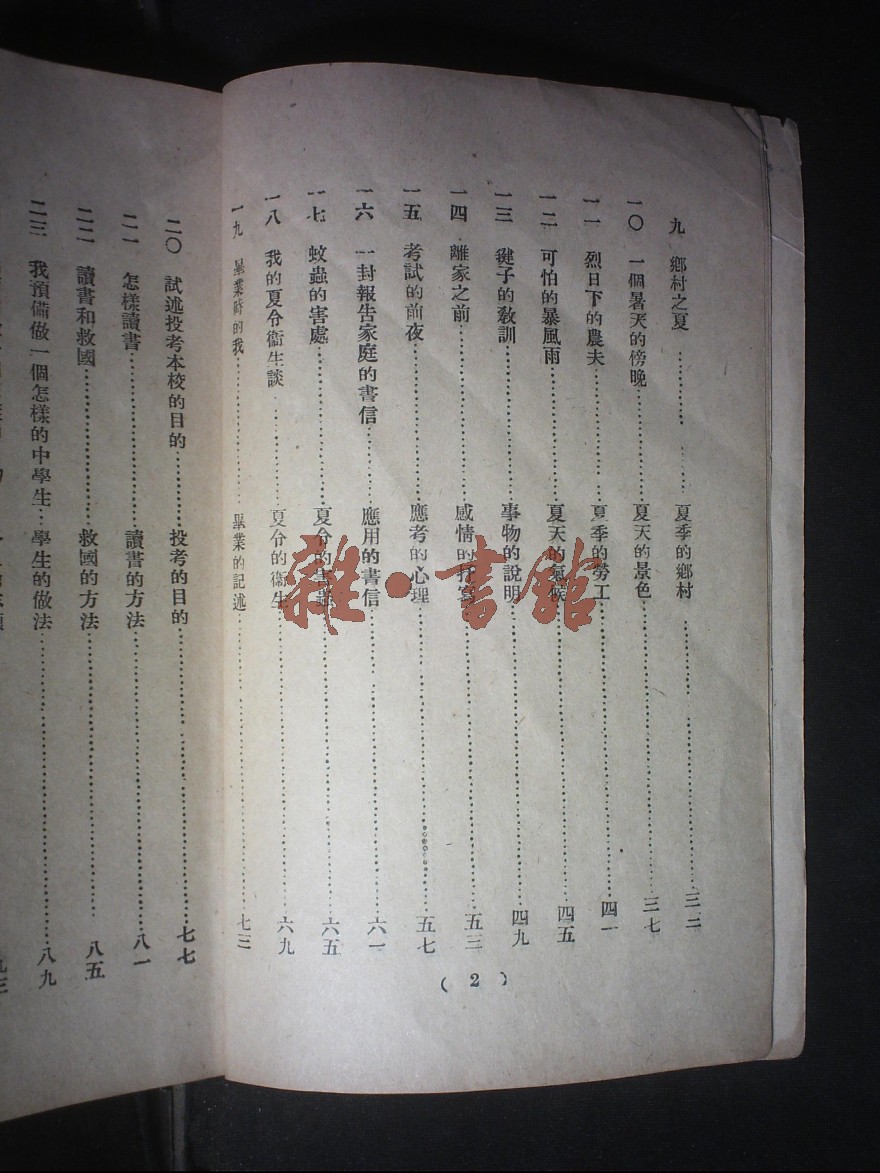 九 鄉村之夏…………夏季的鄉村…………三二
一〇 一個暑天的傍晚…………夏天的景色…………三七
一一 烈日下的農夫…………夏季的勞工…………四一
一二 可怕的暴風雨…………夏天的氣候…………四五
一三 毽子的教訓…………事物的說明…………四九
一四 離家之前…………感情的抒寫…………五三
一五 考試的前夜…………應考的心理…………五七
一六 一封報告家庭的書信…………應用的書信…………六一
一七 蚊蟲的害處…………夏令的害蟲…………六五
一八 我的夏令衞生談…………夏令的衞生…………六九
一九 畢業時的我…………畢業的記述…………七三
(2)
二〇 試述投考本校的目的…………投考的目的…………七七
二一 怎樣讀書…………讀書的方法…………八一
二二 讀書和救國…………救國的方法…………八五
二三 我預備做一個怎樣的中學生…學生的做法…………八九
九三
雜·書館